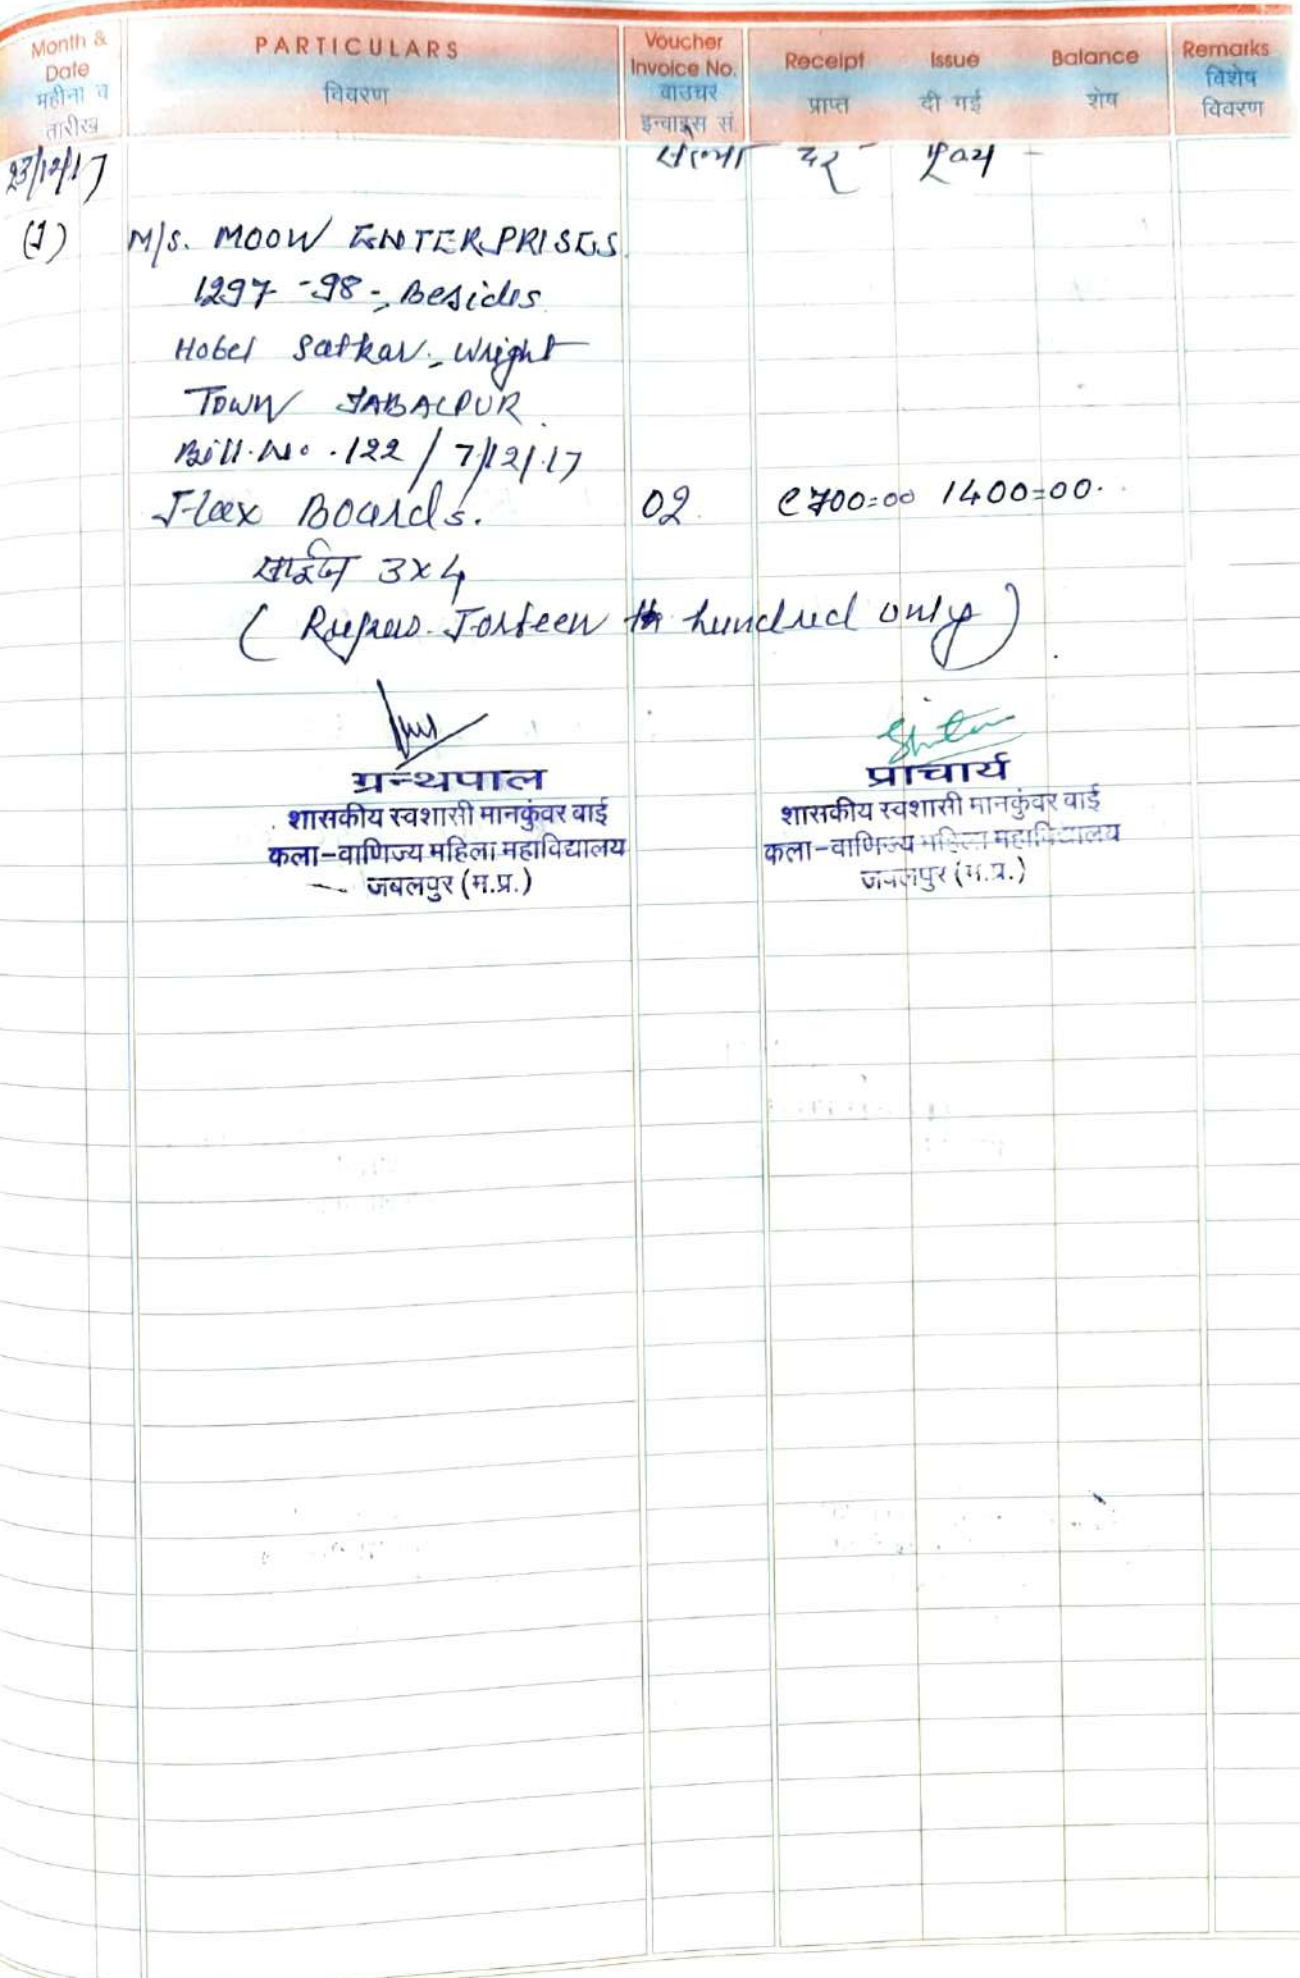 Month & Date महीना व तारीख PARTICULARS विवरण Voucher Invoice No. वाउचर इन्वाइस सं. Receipt प्राप्त Issue दी गई Balance शेष Remarks विशेष विवरण
23/12/17 संख्या दर मूल्य -
(1) M/S. MOON ENTERPRISES
1297-98-, Besides
Hotel Satkar, Wright
TOWN JABALPUR.
Bill.No.122/7/12/17
Flex Boards. 02. @700=00 1400=00.
साईज 3x4
(Rupees Forteen hundred only)
ग्रन्थपाल
शासकीय स्वशासी मानकुंवर बाई
कला-वाणिज्य महिला महाविद्यालय
जबलपुर (म.प्र.)
प्राचार्य
शासकीय स्वशासी मानकुंवर बाई
कला-वाणिज्य महिला महाविद्यालय
जबलपुर (म.प्र.)